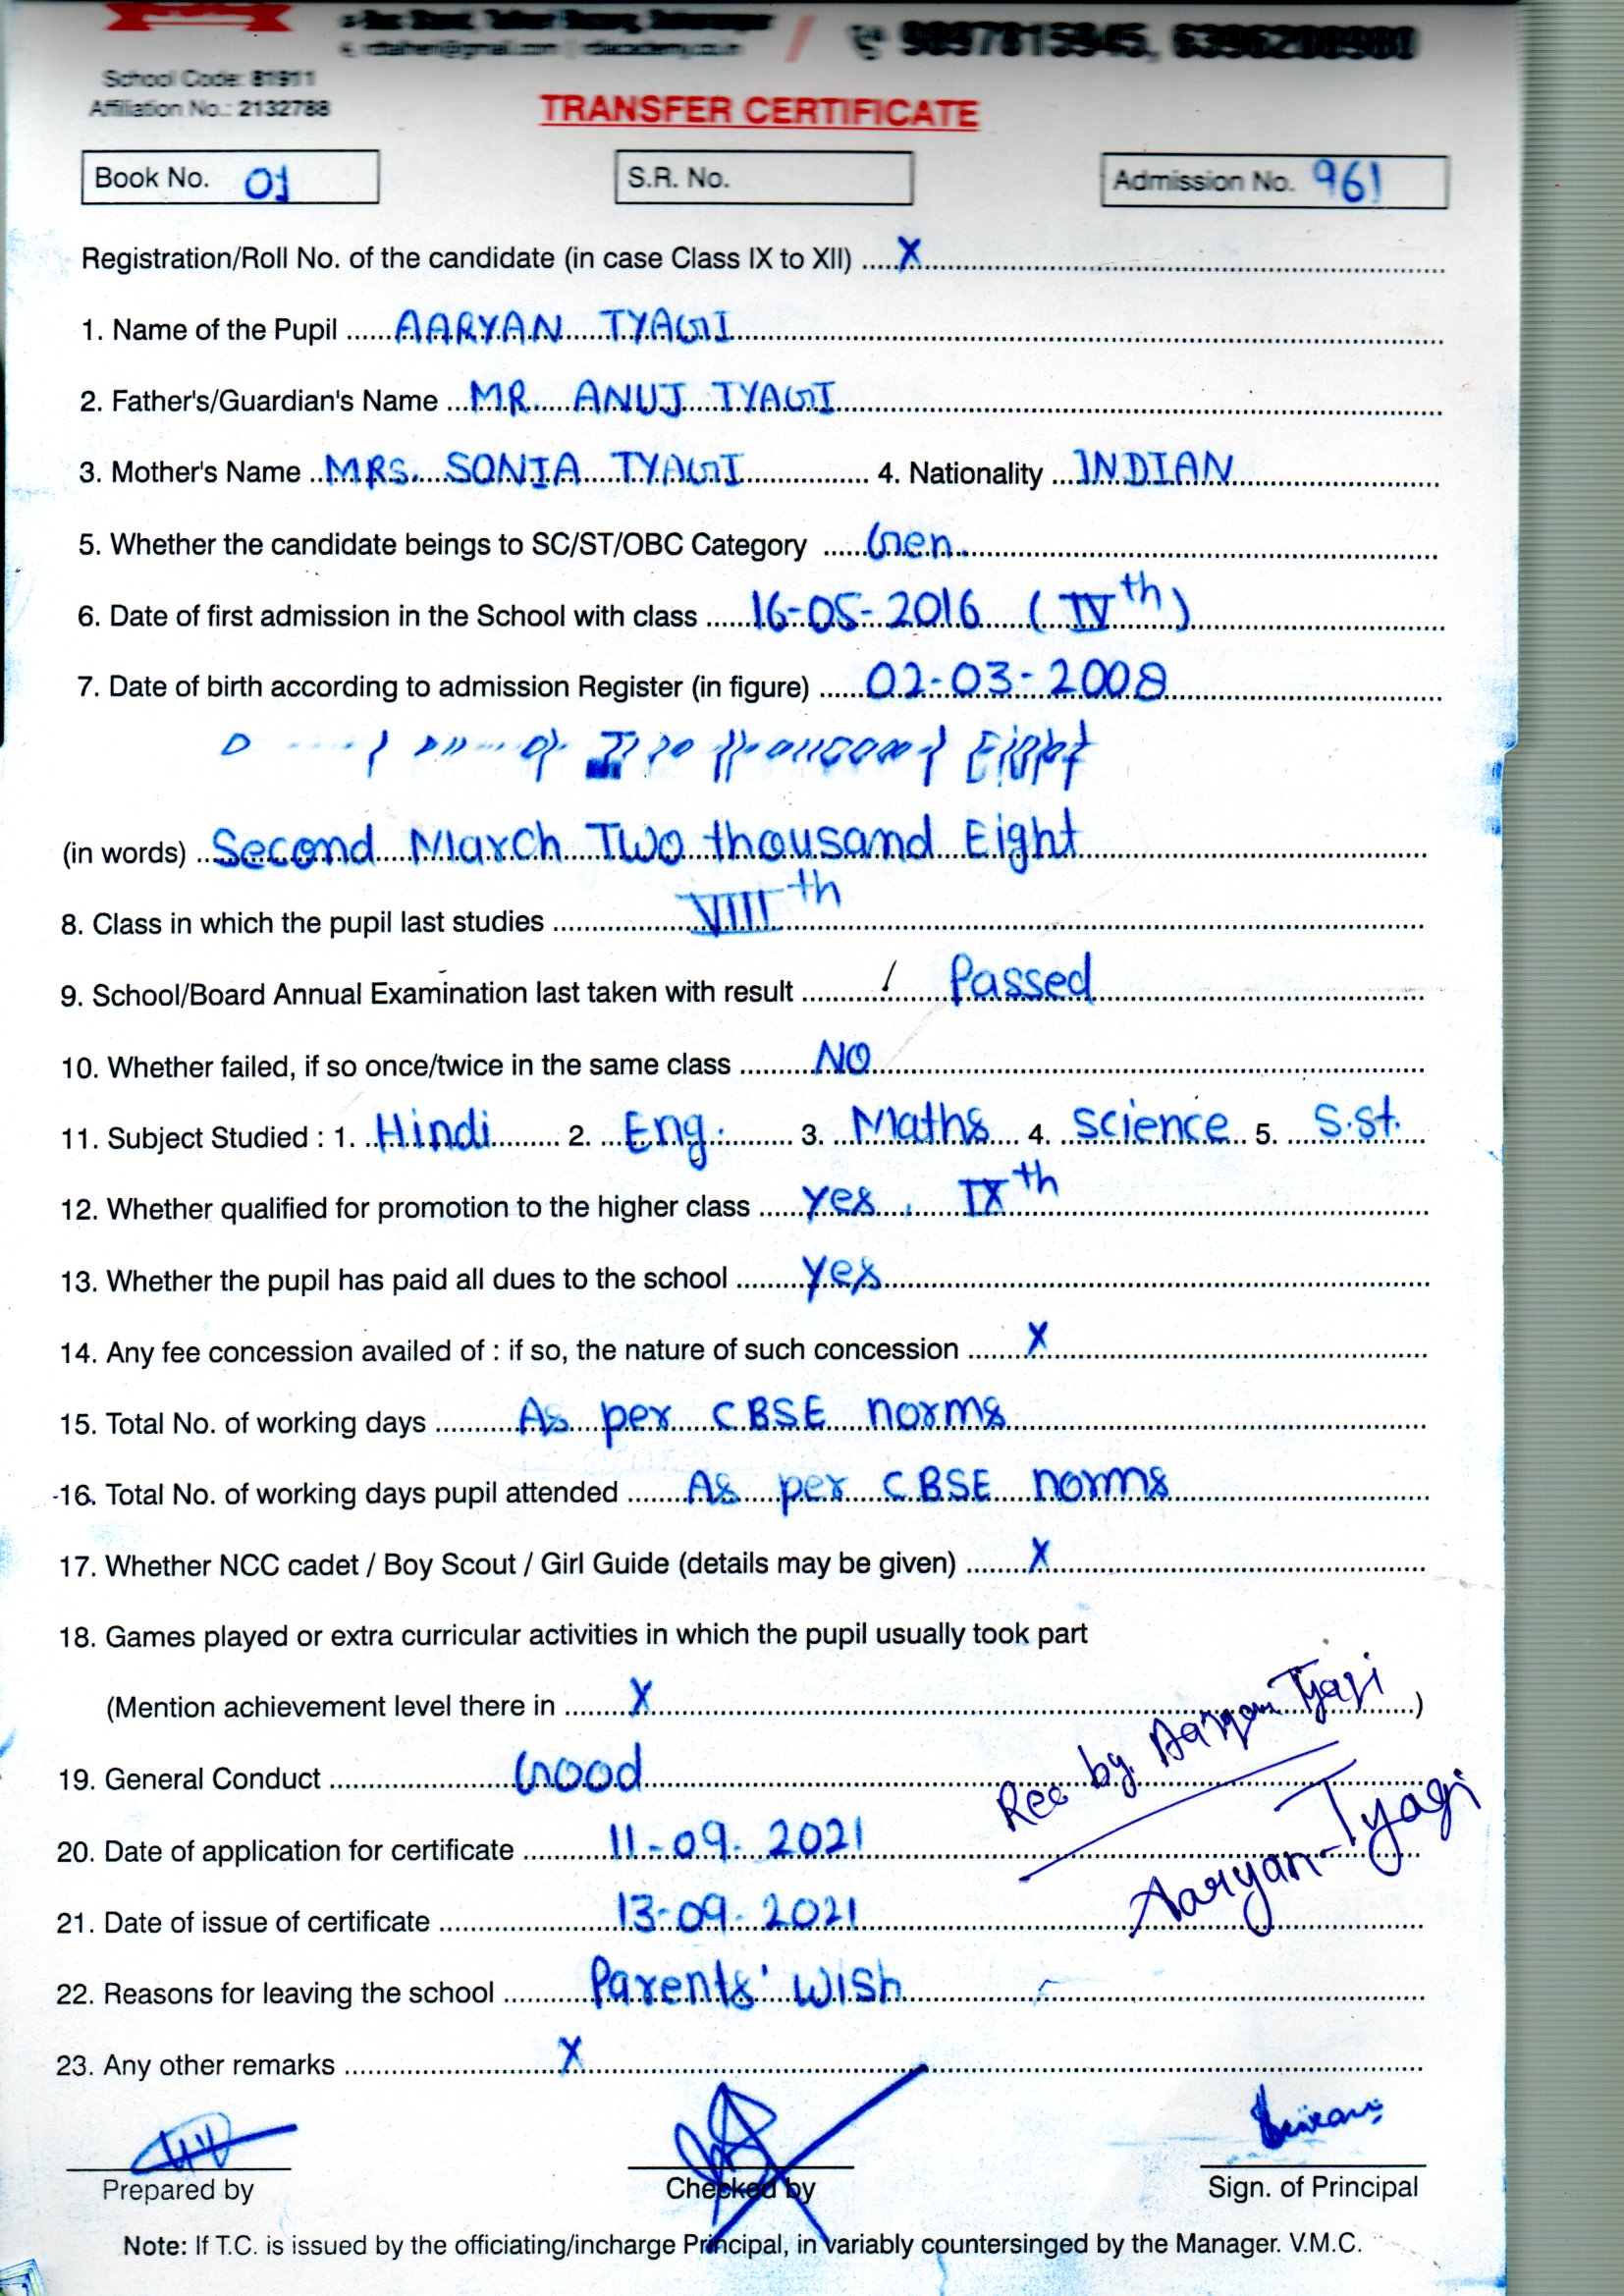 School Code: 81911
Affiliation No.: 2132788
TRANSFER CERTIFICATE
Book No. 01 S.R. No. Admission No. 961
Registration/Roll No. of the candidate (in case Class IX to XII) ..... X
1. Name of the Pupil ..... AARYAN TYAGI
2. Father's/Guardian's Name ... MR. ANUJ TYAGI
3. Mother's Name .. MRS. SONIA TYAGI 4. Nationality ... INDIAN
5. Whether the candidate beings to SC/ST/OBC Category ..... Gen.
6. Date of first admission in the School with class ..... 16-05-2016 (IVth)
7. Date of birth according to admission Register (in figure) ..... 02-03-2008
Eight
(in words) .. Second March Two thousand Eight
8. Class in which the pupil last studies ..... VIIIth
9. School/Board Annual Examination last taken with result ..... Passed
10. Whether failed, if so once/twice in the same class ..... NO
11. Subject Studied : 1. Hindi 2. Eng. 3. Maths 4. Science 5. S.st.
12. Whether qualified for promotion to the higher class ..... yes, IXth
13. Whether the pupil has paid all dues to the school ..... yes
14. Any fee concession availed of : if so, the nature of such concession ..... X
15. Total No. of working days ..... As per CBSE norms
16. Total No. of working days pupil attended ..... As per CBSE norms
17. Whether NCC cadet / Boy Scout / Girl Guide (details may be given) ..... X
18. Games played or extra curricular activities in which the pupil usually took part
(Mention achievement level there in ..... X ..... )
Rec by. Aaryan Tyagi
19. General Conduct ..... Good
Aaryan Tyagi
20. Date of application for certificate ..... 11-09-2021
21. Date of issue of certificate ..... 13-09-2021
22. Reasons for leaving the school ..... Parents' wish
23. Any other remarks ..... X
Prepared by Checked by Sign. of Principal
Note: If T.C. is issued by the officiating/incharge Principal, in variably countersinged by the Manager. V.M.C.